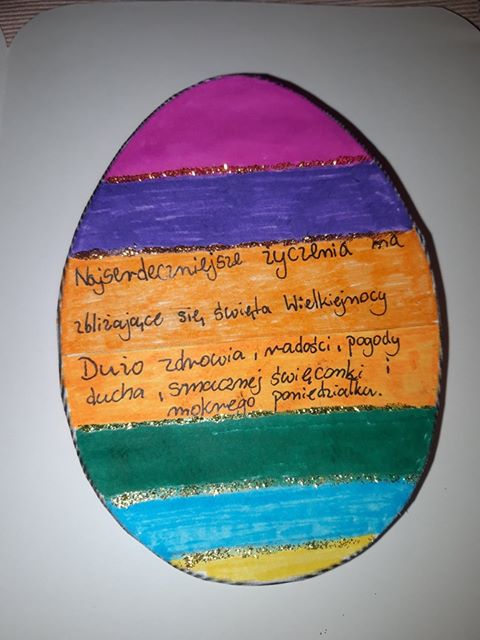 Najserdeczniejsze życzenia na
zbliżające się święta Wielkiejnocy
Dużo zdrowia, radości, pogody
ducha, smacznej święconki i
mokrego poniedziałku.